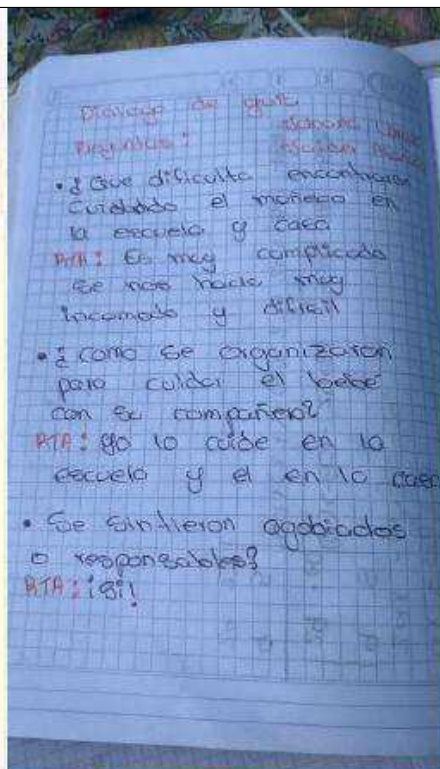 Dialogo de
Preguntas:
• ¿Que dificulta encontraron
cuidando el muñeco en
la escuela y casa
RTA: Es muy complicado
se nos hacia muy
incomodo y dificil
• ¿como se organizaron
para cuidar el bebe
con su compañero?
RTA: yo lo cuide en la
escuela y el en la casa
• Se sintieron agobiados
o responsables?
RTA: ¡Si!